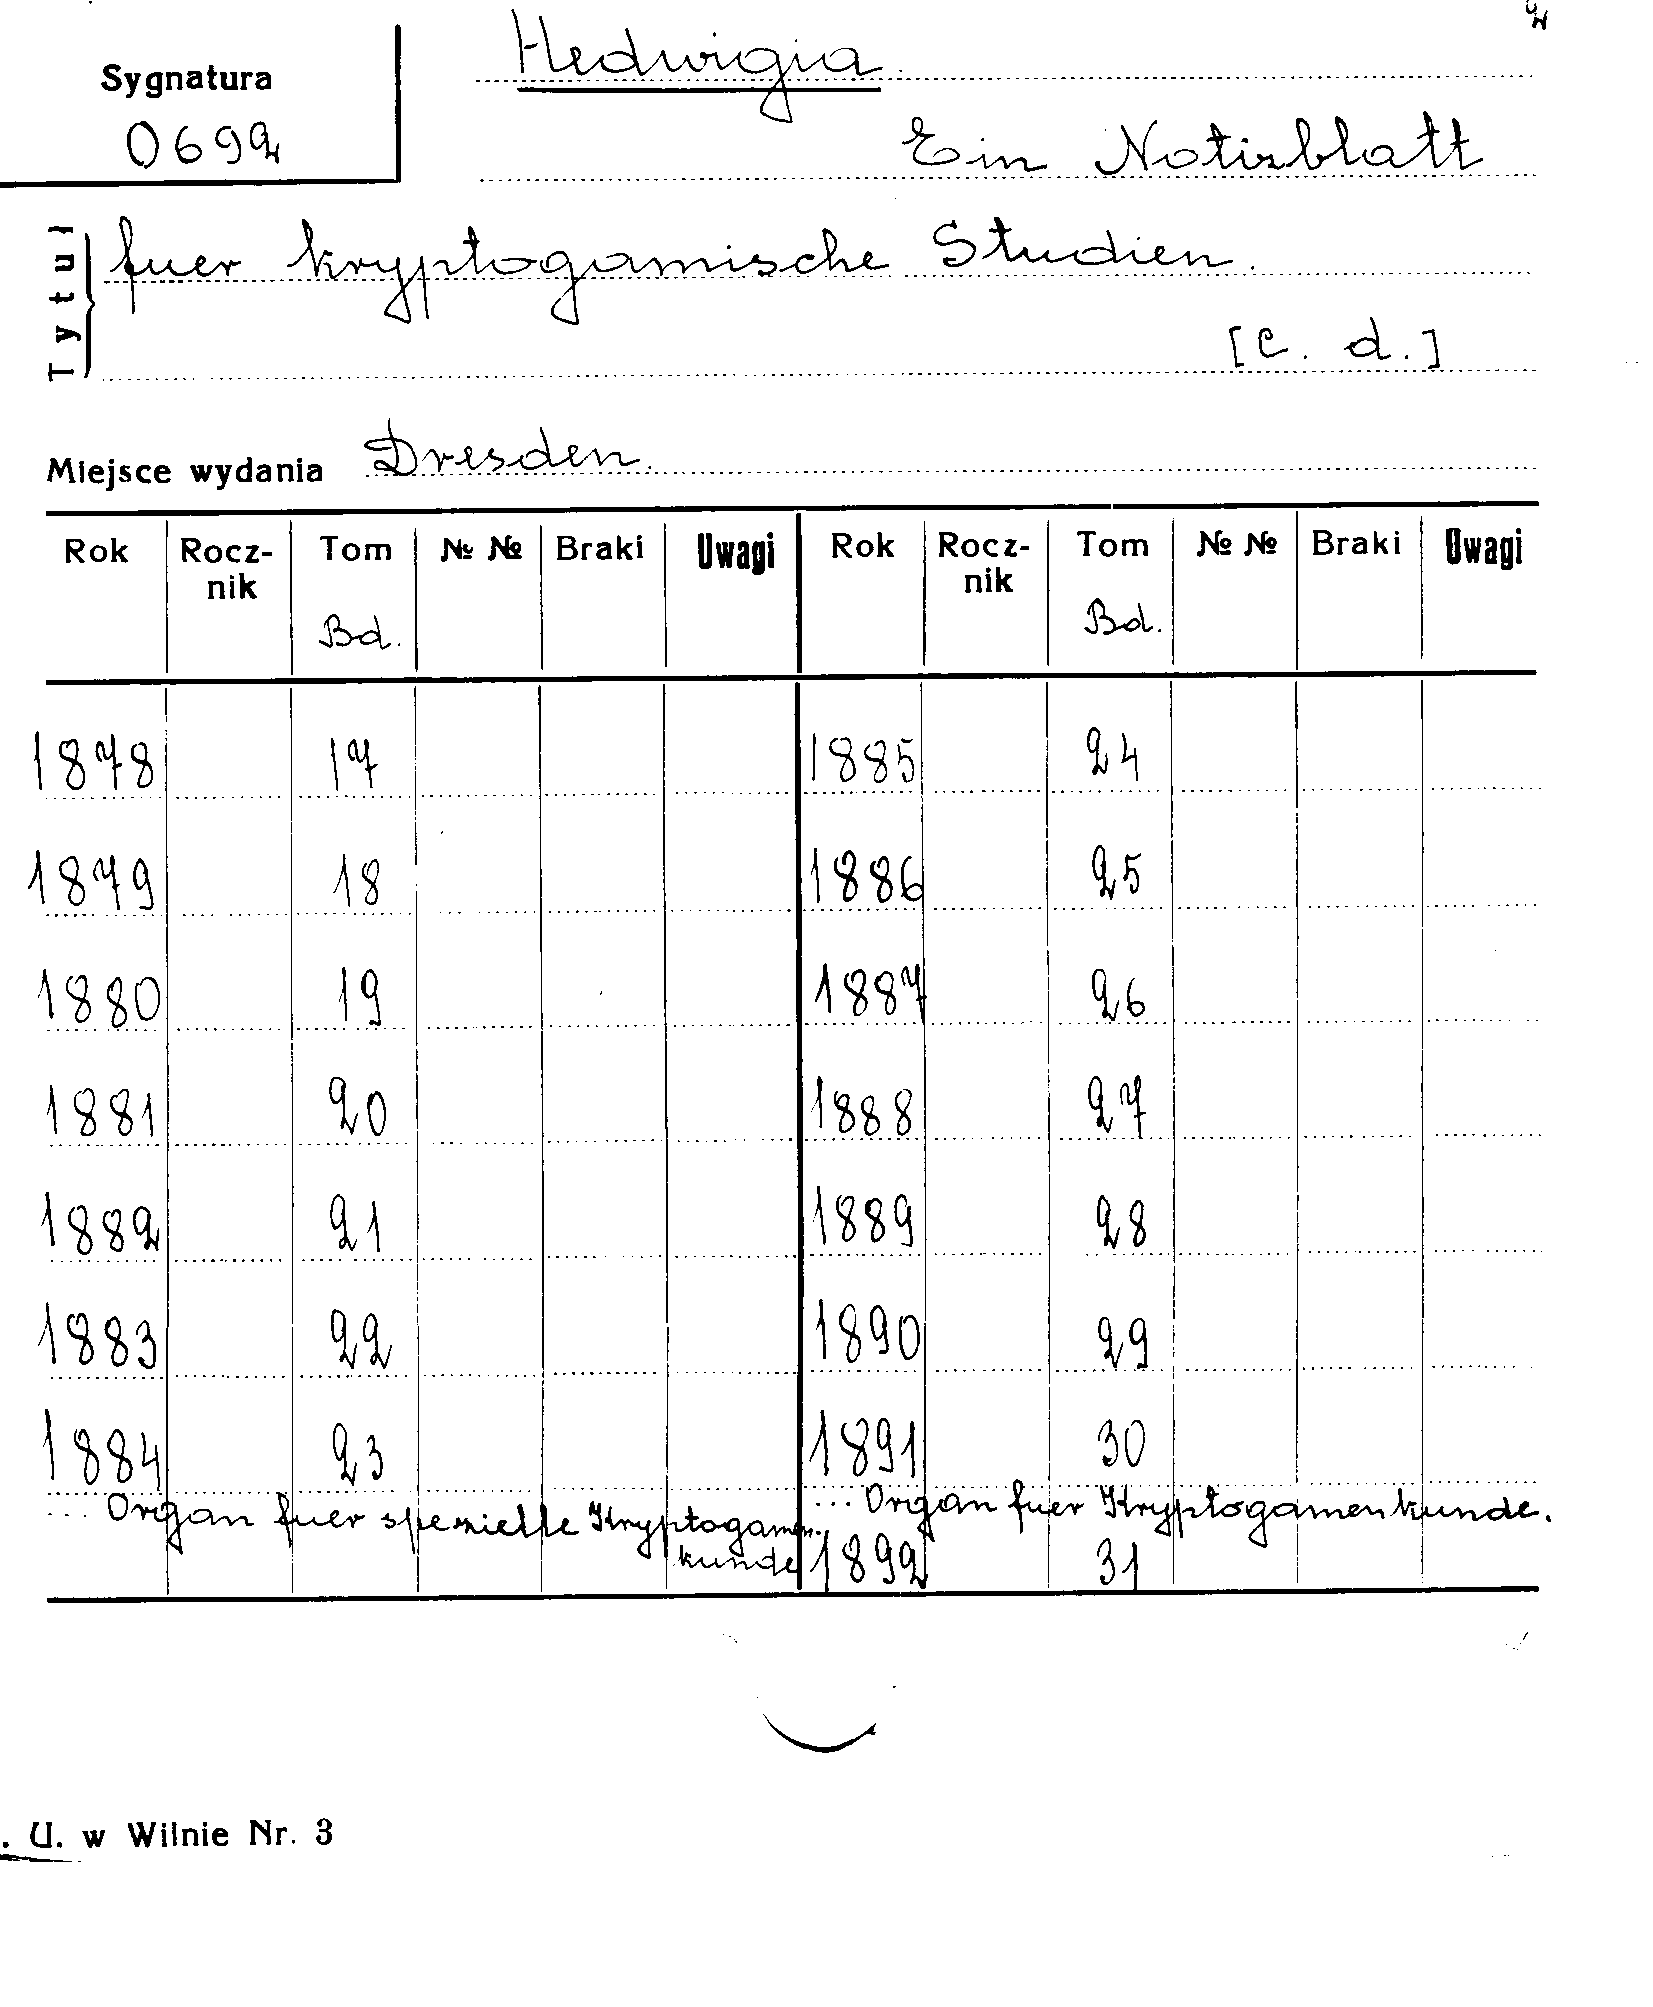 2
Hedwigia
Sygnatura
0692
Ein Notizblatt
Tytuł
fuer kryptogamische Studien.
[c. d.]
Miejsce wydania Dresden.
Rok Rocz-nik Tom № № Braki Uwagi Rok Rocz-nik Tom № № Braki Uwagi
Bd. Bd.
1878 17 1885 24
1879 18 1886 25
1880 19 1887 26
1881 20 1888 27
1882 21 1889 28
1883 22 1890 29
1884 23 1891 30
... Organ fuer spezielle Kryptogamen- ... Organ fuer Kryptogamenkunde.
kunde 1892 31
. U. w Wilnie Nr. 3